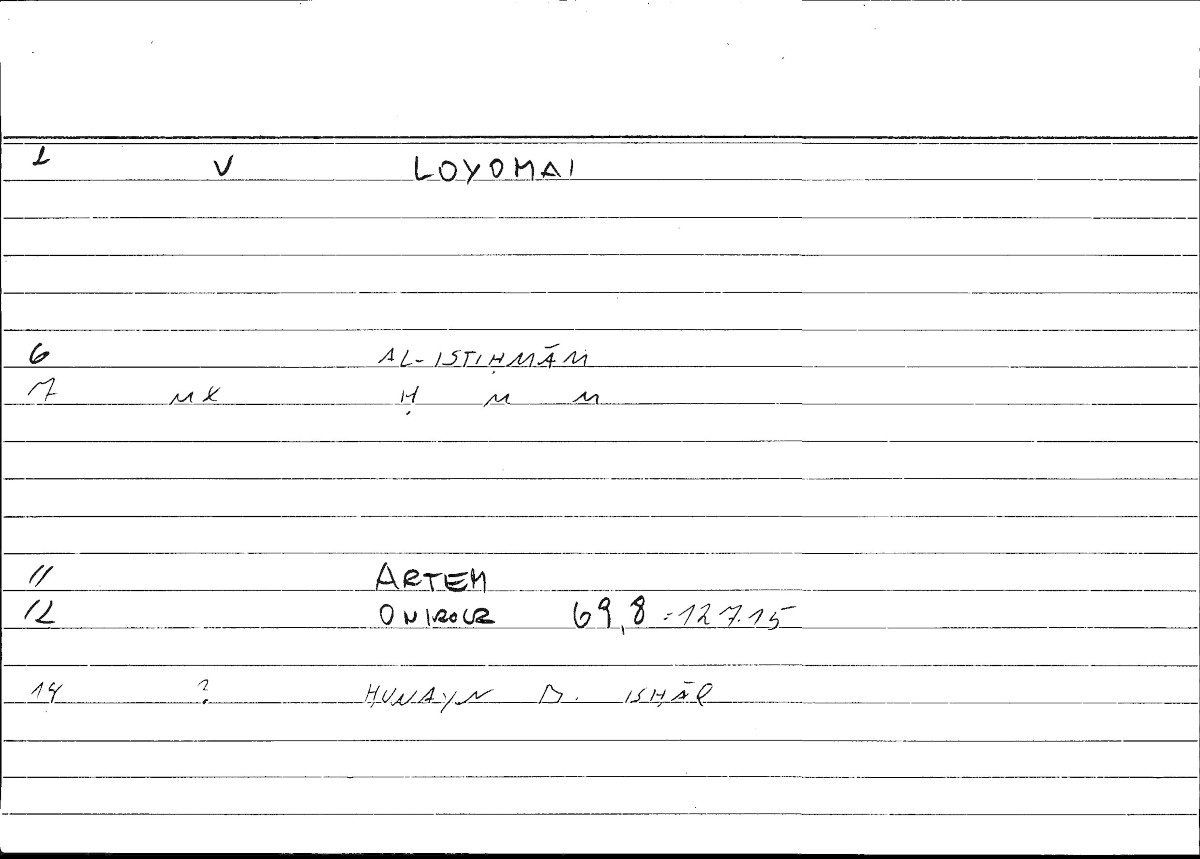 1 V LOYOMAI
6 AL-ISTIḤMĀM
7 MX Ḥ M M
11 ARTEM
12 ONIROCR 69,8 = 127.15
14 ? ḤUNAYN B. ISḤĀQ